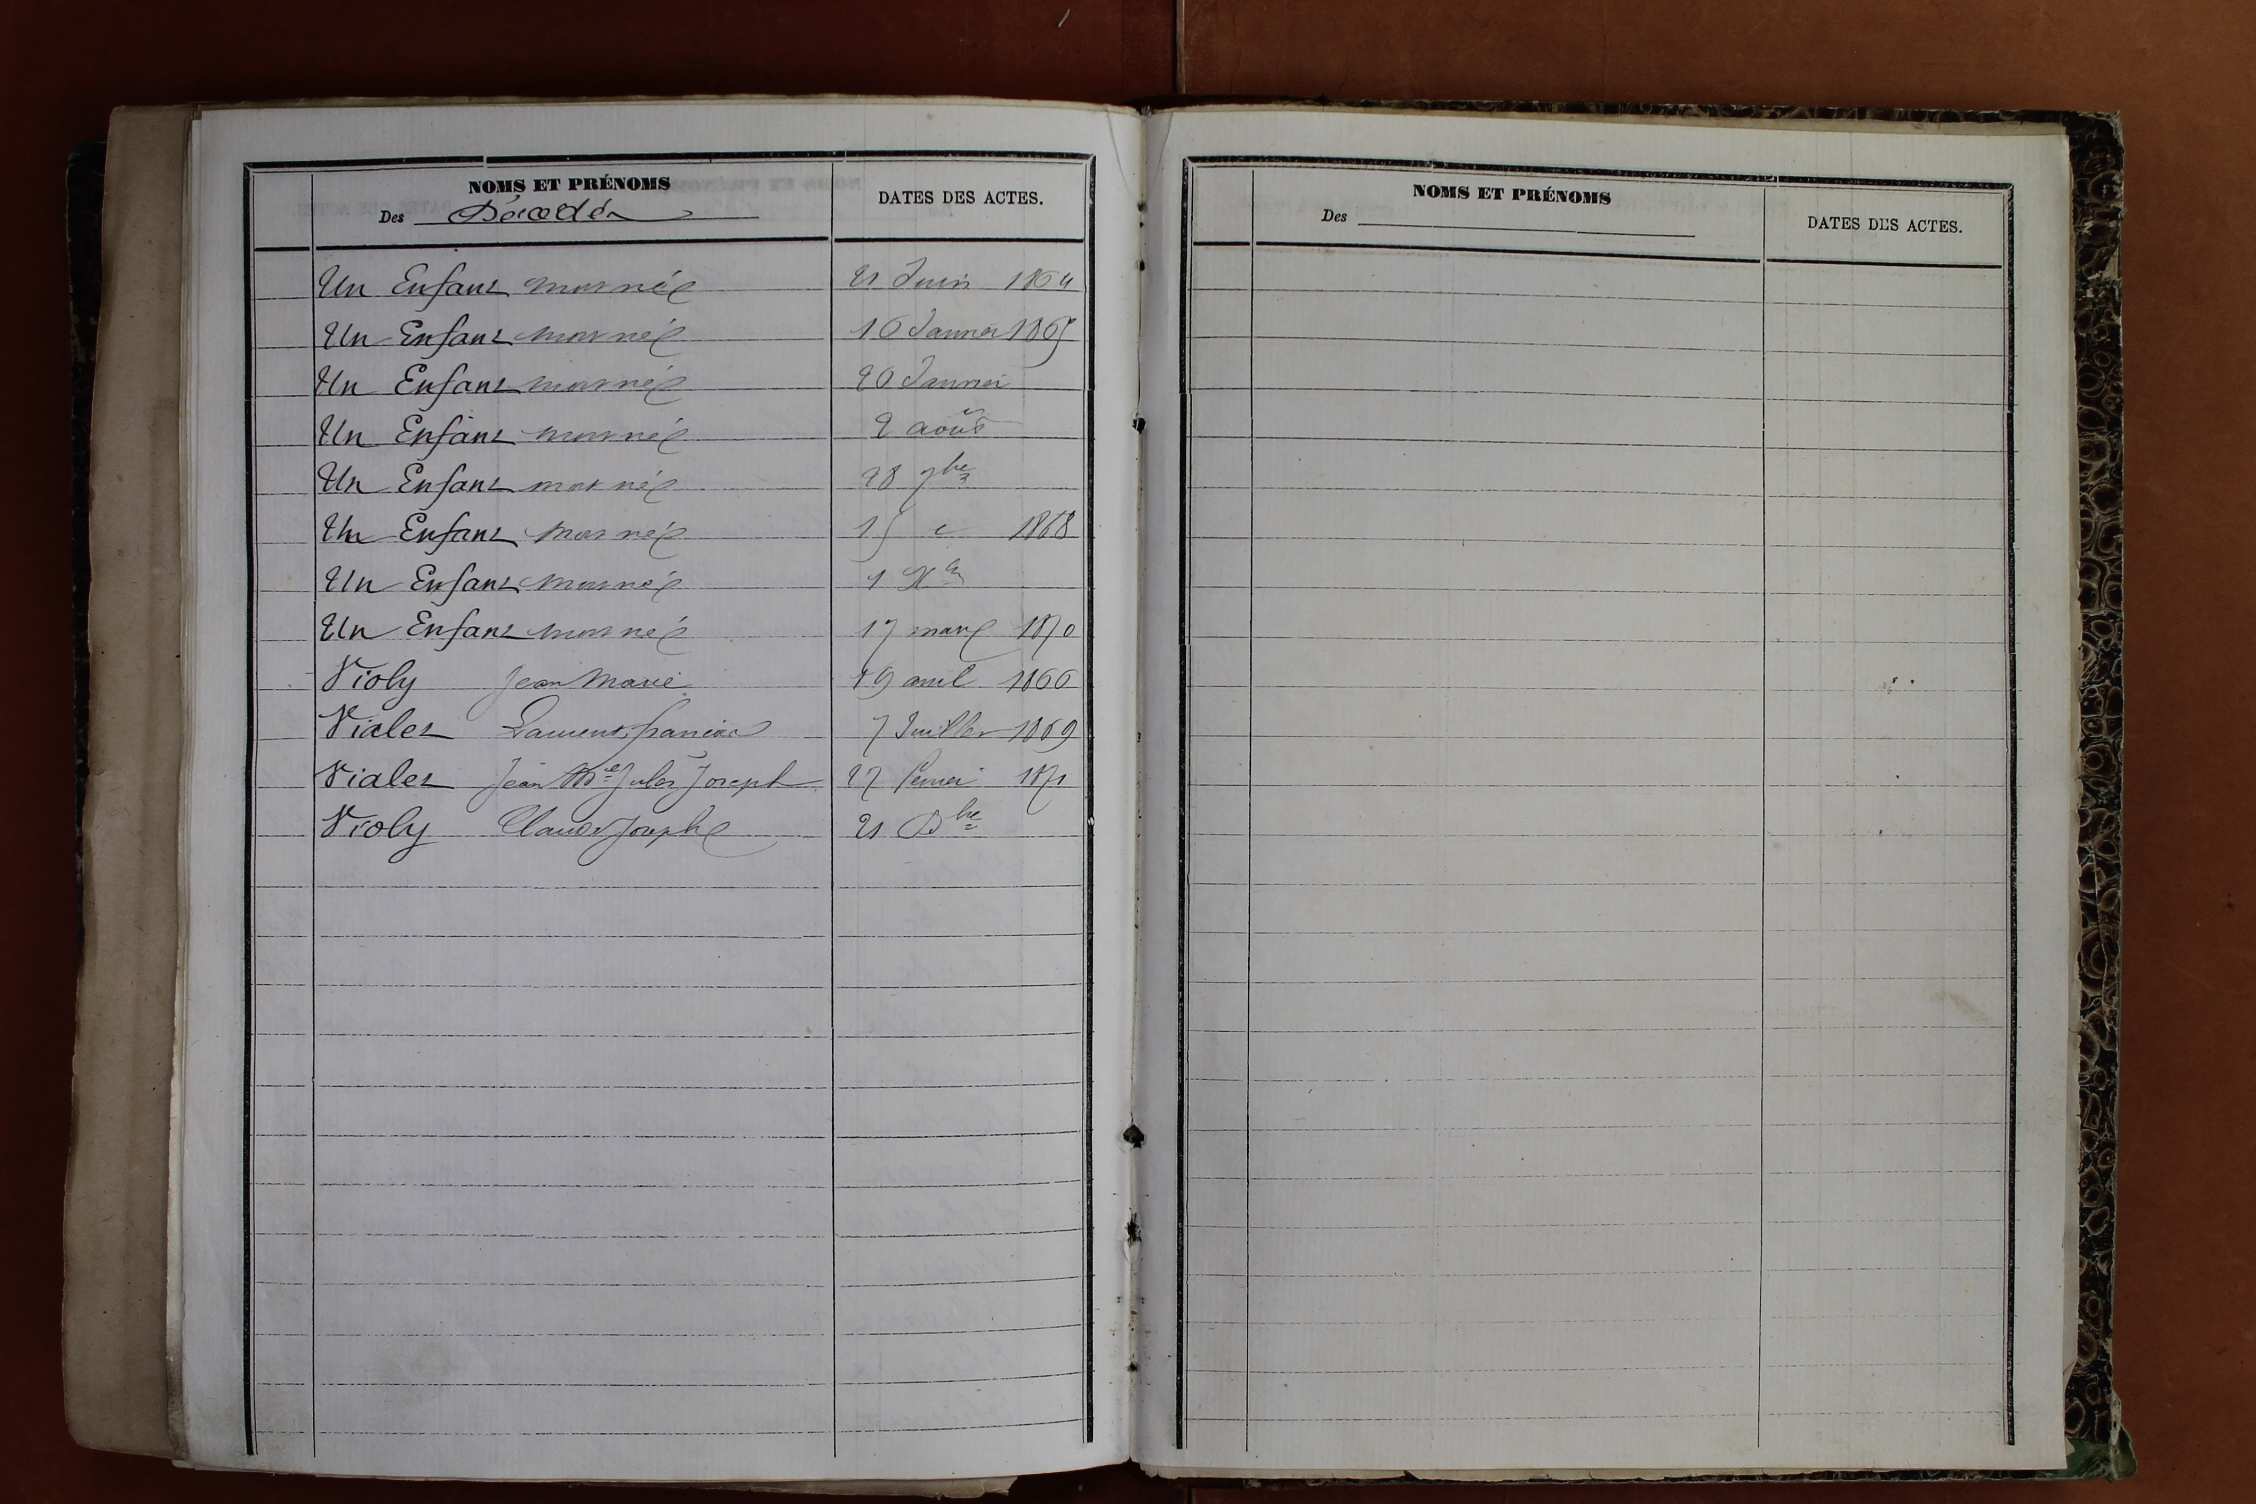 NOMS ET PRÉNOMS
Des Décédés
DATES DES ACTES.
Un Enfant mort né 21 Juin 1864
Un Enfant mort né 16 Janvier 1865
Un Enfant mort né 20 Janvier
Un Enfant mort né 2 août
Un Enfant mort né 28 7bre
Un Enfant mort né 15 1868
Un Enfant mort né 1
Un Enfant mort né 17 mars 1870
Violy Jean Marie 19 avril 1866
Vialet Laurent francois 7 Juillet 1869
Vialet Jean Mie Jules Joseph 27 février 1871
Violy Claude Joseph 21 Dbre
NOMS ET PRÉNOMS
Des
DATES DES ACTES.